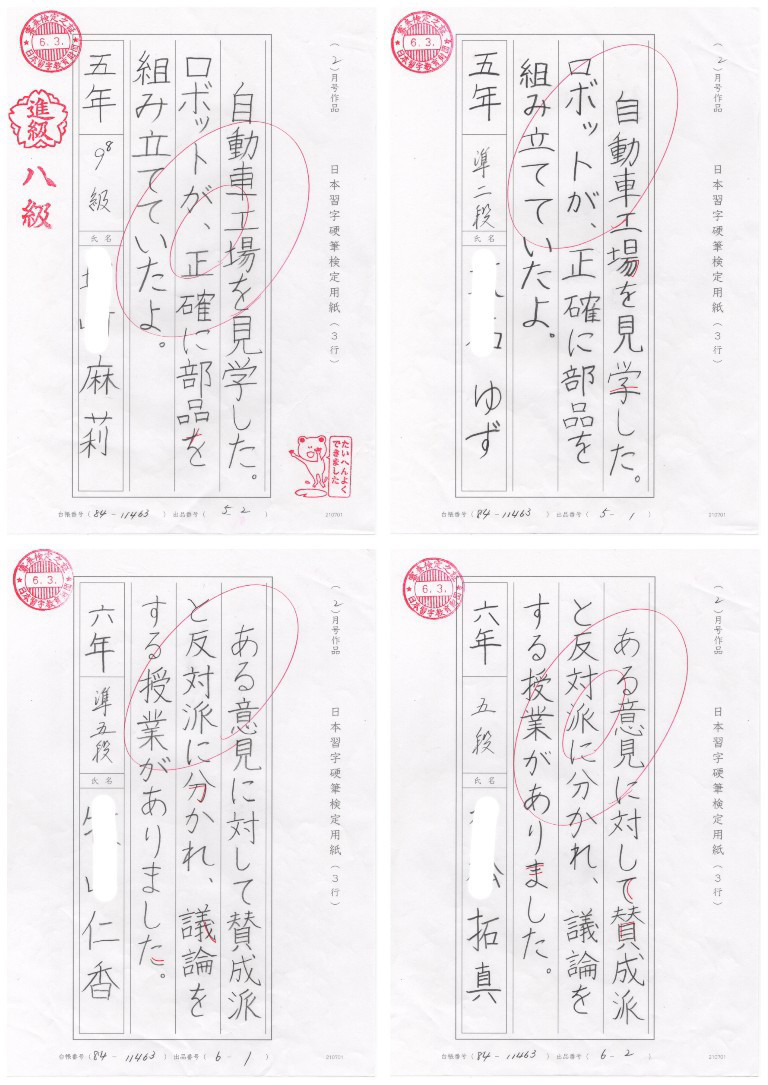 (2)月号作品
日本習字硬筆検定用紙(3行)
自動車工場を見学した。
ロボットが、正確に部品を
組み立てていたよ。
五年
9 8 級
氏名
麻莉
6.3.
日本習字教育財団
進級
八級
たいへんよく
できました
台帳番号(84-11463) 出品番号(5-2)
210701
(2)月号作品
日本習字硬筆検定用紙(3行)
自動車工場を見学した。
ロボットが、正確に部品を
組み立てていたよ。
五年
準二段
氏名
ゆず
6.3.
日本習字教育財団
台帳番号(84-11463) 出品番号(5-1)
210701
(2)月号作品
日本習字硬筆検定用紙(3行)
ある意見に対して賛成派
と反対派に分かれ、議論を
する授業がありました。
六年
準五段
氏名
仁香
6.3.
日本習字教育財団
台帳番号(84-11463) 出品番号(6-1)
210701
(2)月号作品
日本習字硬筆検定用紙(3行)
ある意見に対して賛成派
と反対派に分かれ、議論を
する授業がありました。
六年
五段
氏名
拓真
6.3.
日本習字教育財団
台帳番号(84-11463) 出品番号(6-2)
210701